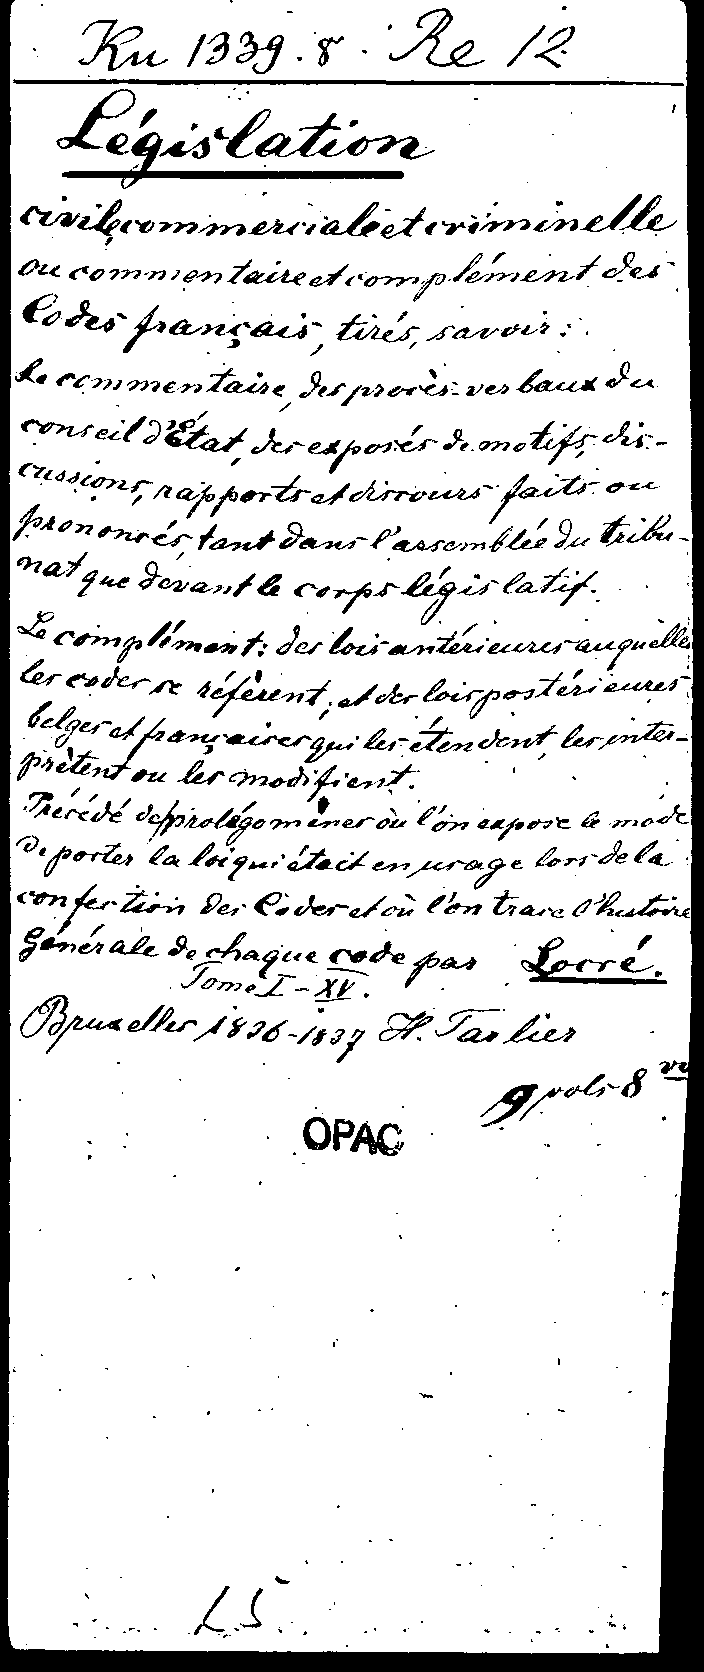 Ku 1339.8. Re 12
Législation
civile, commerciale et criminelle
ou commentaire et complément des
Codes français, tirés, savoir:
Le commentaire, des procès-verbaux du
conseil d'État, des exposés de motifs, dis-
cussions, rapports et discours faits ou
prononcés, tant dans l'assemblée du tribu-
nat que devant le corps législatif.
Le complément: des lois antérieures auquelles
les codes se réfèrent; et des lois postérieures
belges et françaises qui les étendent, les inter-
prètent ou les modifient.
Précédé de prolégomènes où l'on expose le mode
de porter la loi qui était en usage lors de la
confection des Codes et où l'on trace l'histoire
Générale de chaque code par Locré.
Tome I-XV.
Bruxelles 1836-1837 H. Tarlier
9 vols 8vo
OPAC
L5